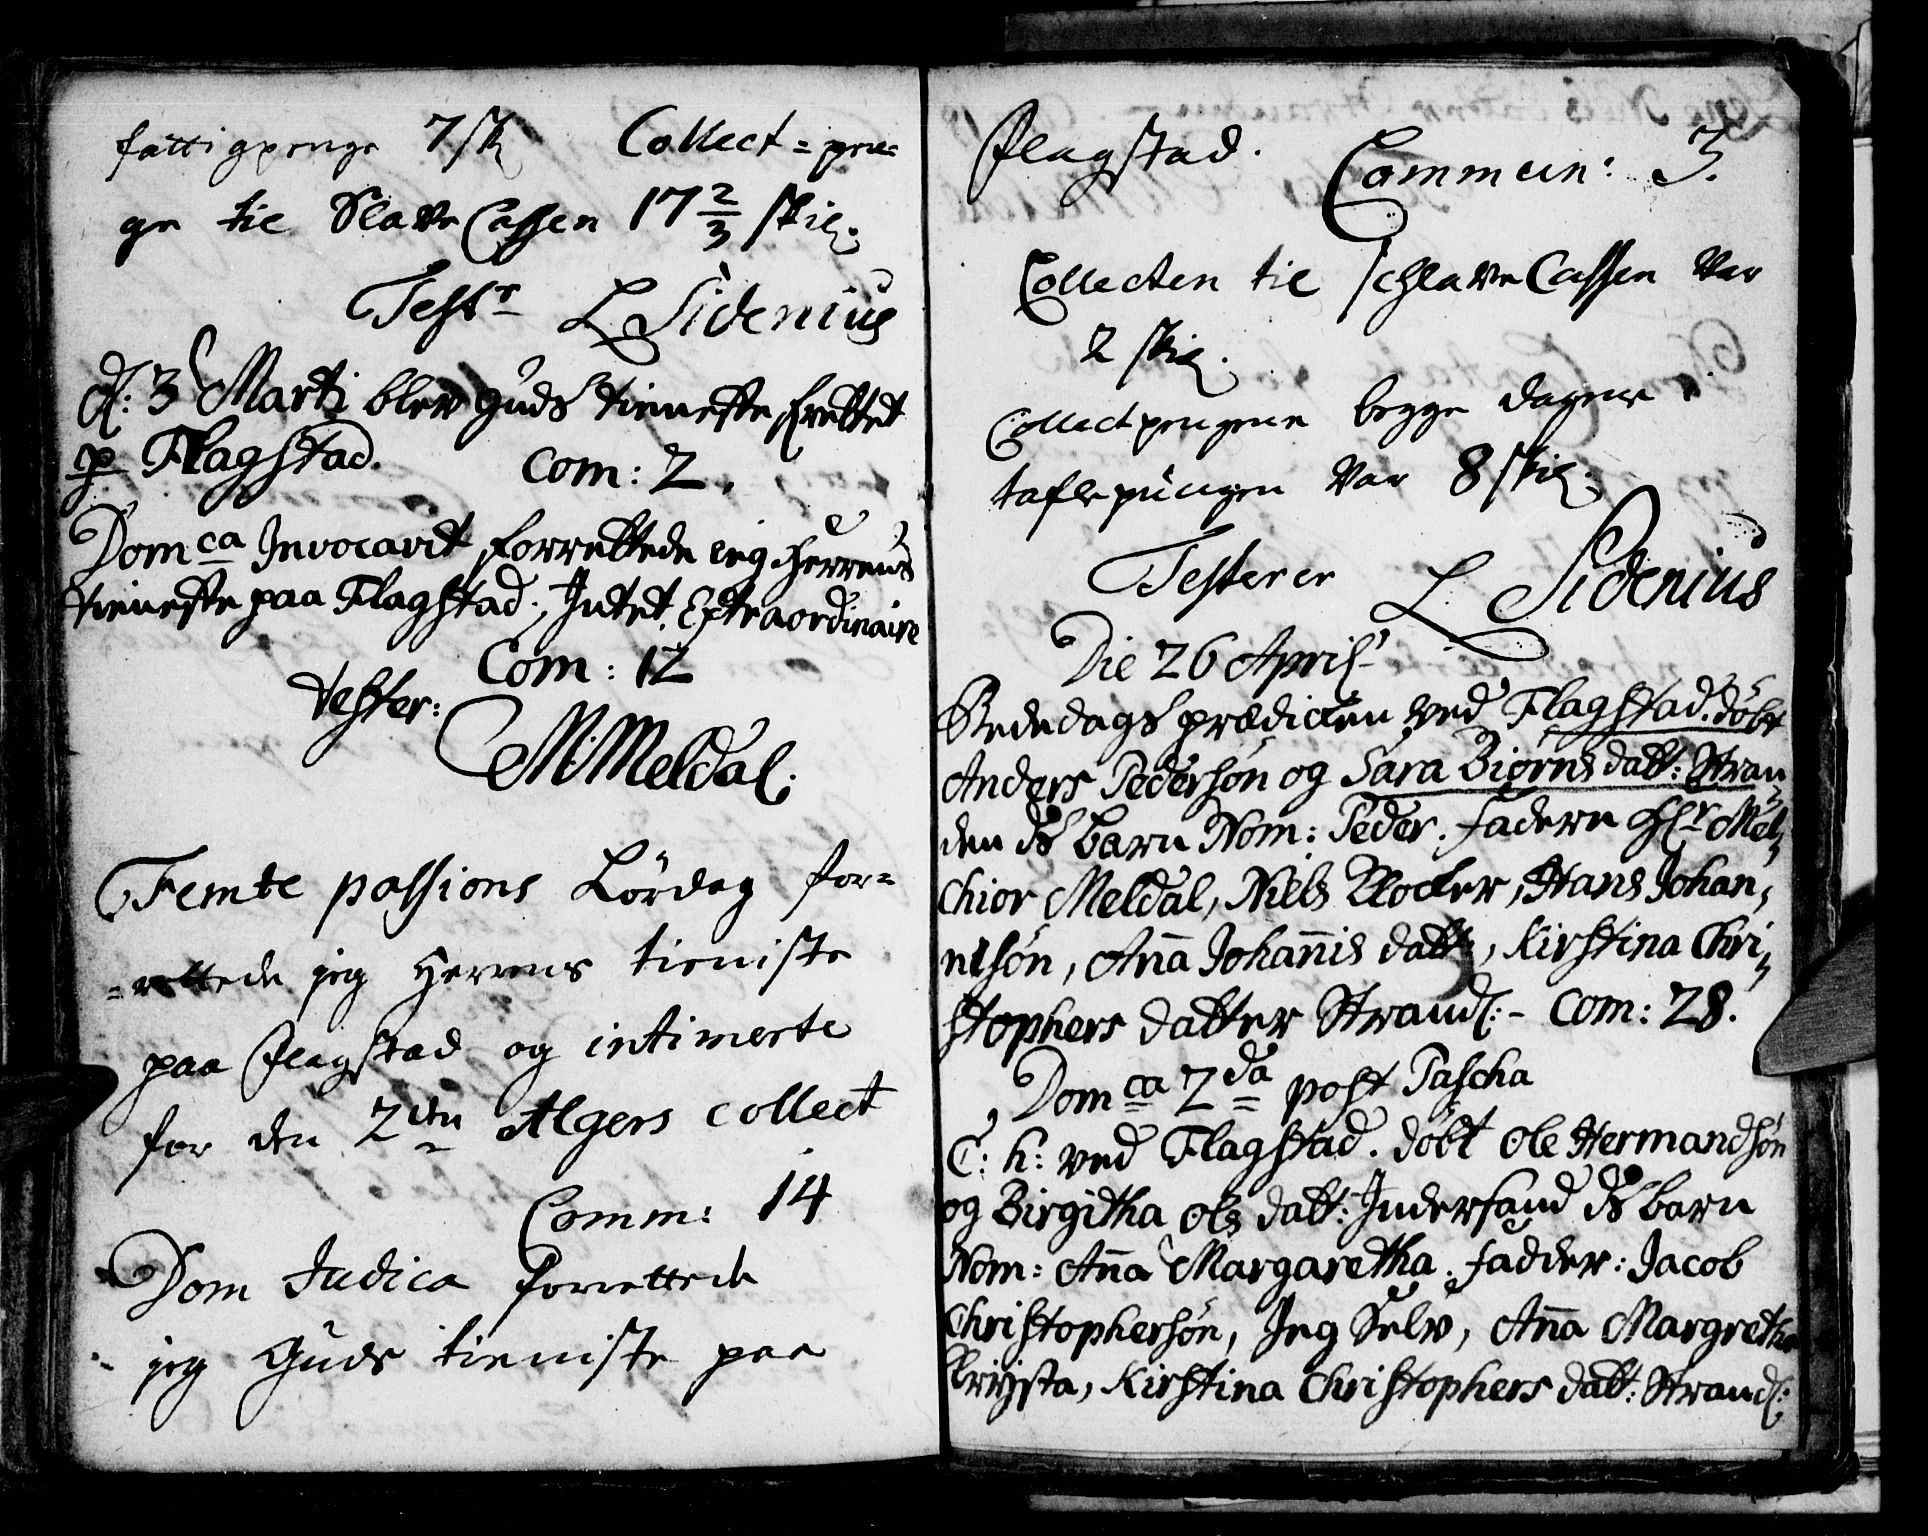 fattigpenge 7 sk Collect = pen=
ge til Slave Cassen 17 2/3 skil.
Test. L Sidenius
d: 3 Marti blev Guds tieneste forrettet
p Flagstad. Com: 2.
Dom ca Invocavit forrettede ieg Herrens
tieneste paa Flagstad, Intet Extraordinaire
Com: 12
tester:
M: Meldal.
Femte passions Lördag for=
=rettede jeg Herrens tieniste
paa Flagstad og intimerte
for den 2den Algers collect
Comm: 14
Dom Judica forrettede
jeg Guds tieniste paa
Flagstad. Commun: 3.
Collecten til schlave Cassen var
2 skil.
Collectpengene begge dagene i
taflepungen var 8 skil.
Testerer L. Sidenius
Die 26 April
Bededags prædicken ved Flagstad. döbt
Anders Pedersön og Sara Biörns datt: Stran=
den ds barn Nom: Peder. faderne Hr Mel=
chior Meldal, Niels Klocker, Hans Johan=
nesön, Ana Johanis datt:, Kirstina Chri=
stophers datter Strand: - Com: 28.
Dom ca 2 da post Pascha
C: h: ved Flagstad. döbt Ole Hermandsön
og Birgitha Ols datt: Indersand ds barn
Nom: Ana Margaretha. fadder: Jacob
Christophersön, Jeg Selv, Ana Margretha
Kirstina Christophers datt: Strand: